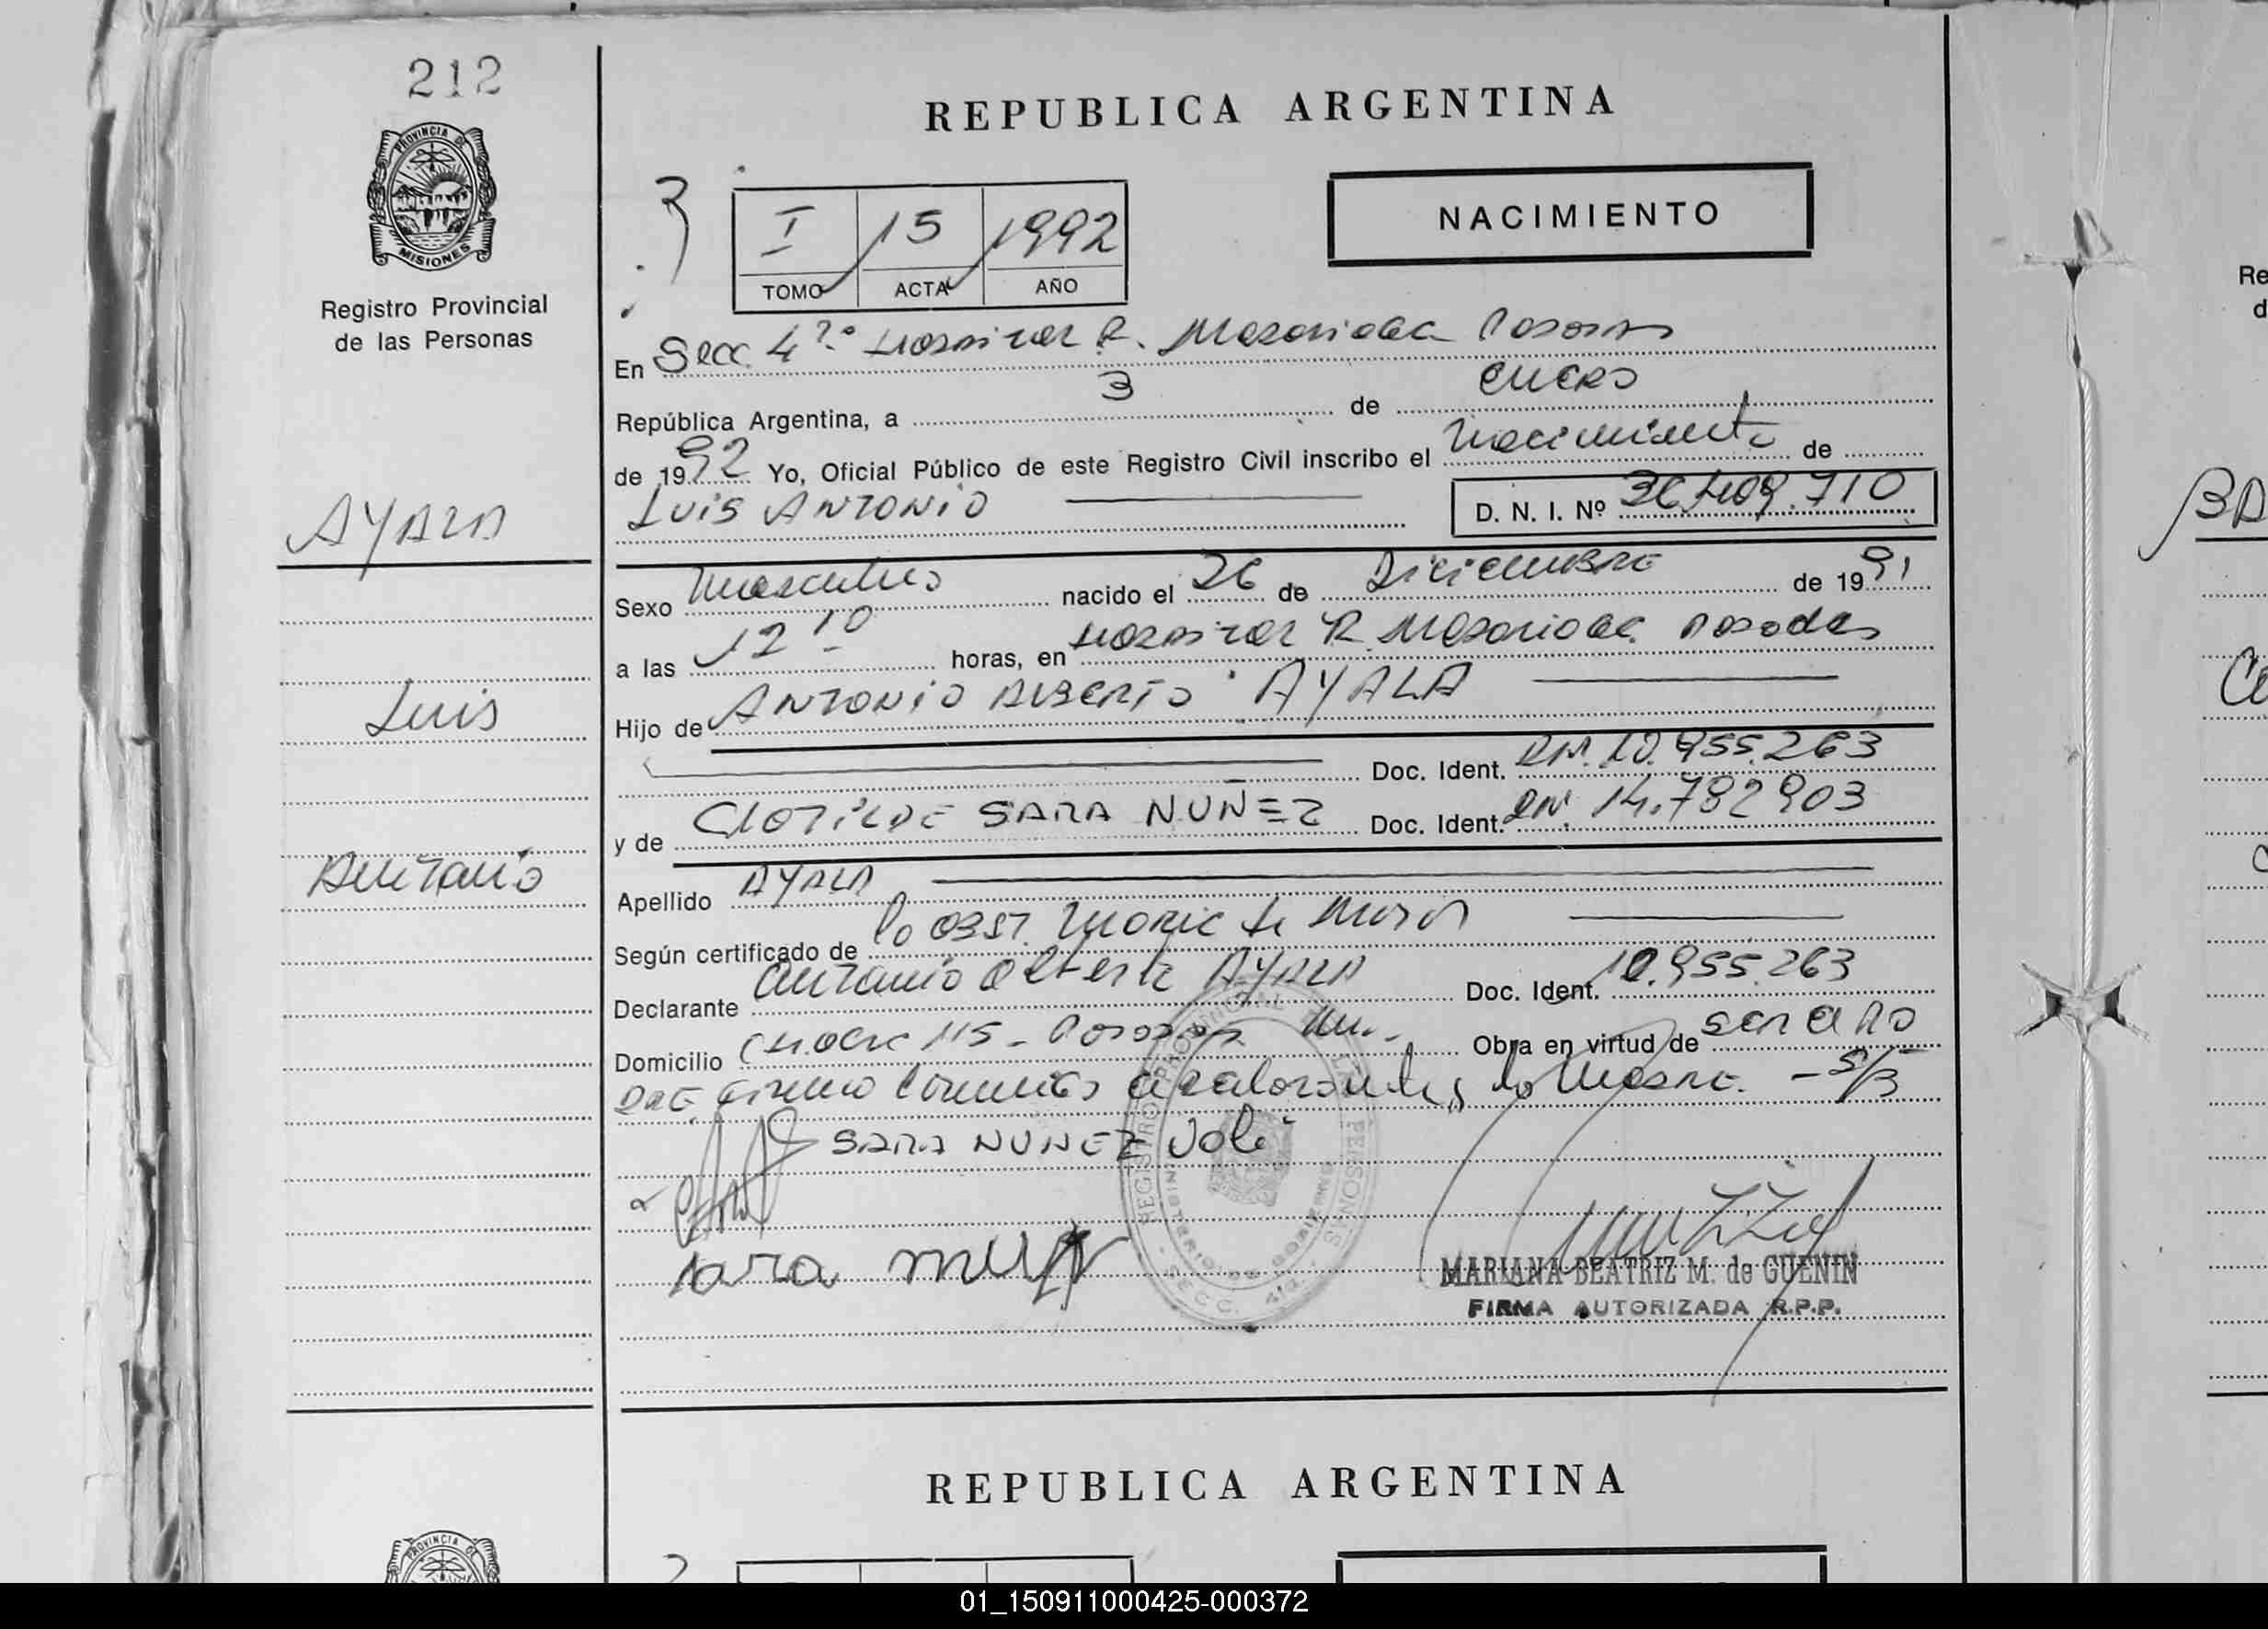 212
PROVINCIA DE
MISIONES
Registro Provincial
de las Personas
AYALA
Luis
Antonio
REPUBLICA ARGENTINA
3
I 15 1992
TOMO ACTA AÑO
NACIMIENTO
En Secc. 4ta. Hospital R. Madariaga Posadas
República Argentina, a 3 de enero
de 1992 Yo, Oficial Público de este Registro Civil inscribo el Nacimiento de
LUIS ANTONIO D. N. I. Nº 36.409.710
Sexo Masculino nacido el 26 de Diciembre de 1991
a las 12 10 horas, en Hospital R. Madariaga Posadas
Hijo de ANTONIO ALBERTO AYALA
Doc. Ident. DNI. 10.955.263
y de CLOTILDE SARA NUÑEZ Doc. Ident. DNI. 14.782.903
Apellido AYALA
Según certificado de la OBST.
Declarante Antonio Alberto AYALA Doc. Ident. 10.955.263
Domicilio 115 - Posadas Mnes. Obra en virtud de ser el PADRE
firma la Madre. - S/B
SARA NUÑEZ Vale
sara
REGISTRO PROVINCIAL DE LAS PERSONAS
MINISTERIO DE GOBIERNO
SECC. 4ta.
MARIANA BEATRIZ M. de GUENIN
FIRMA AUTORIZADA R.P.P.
REPUBLICA ARGENTINA
PROVINCIA DE
01_150911000425-000372